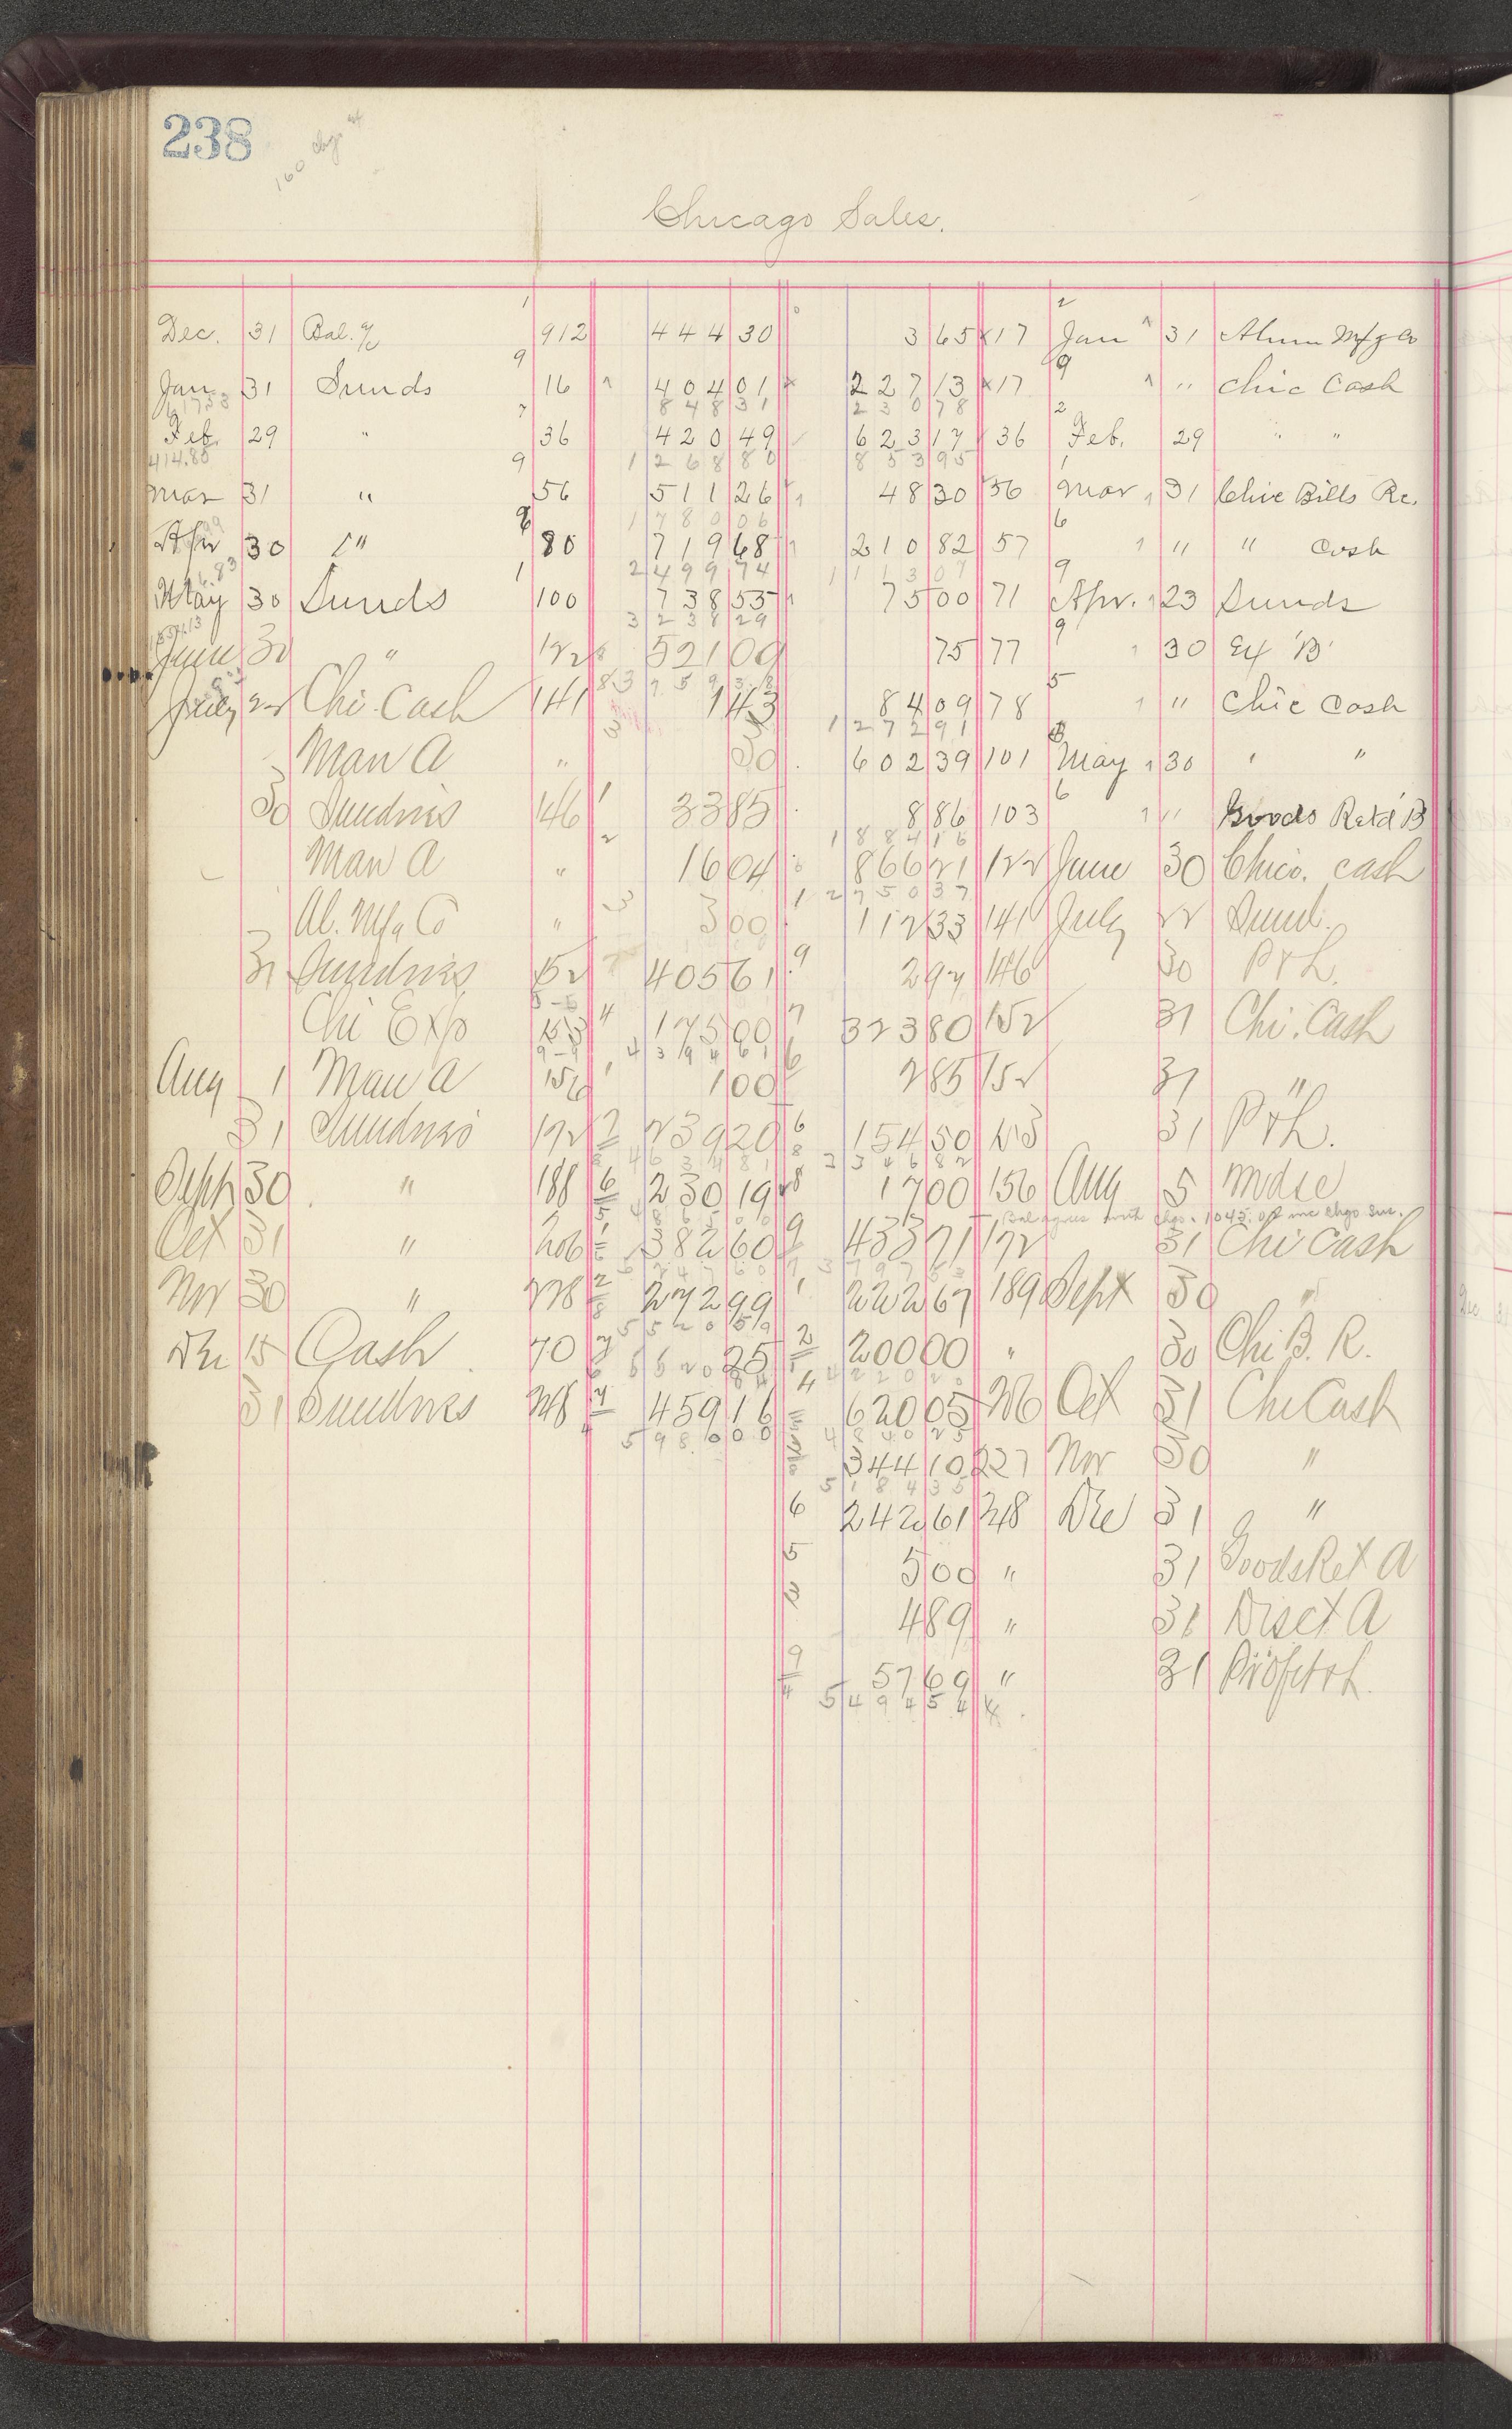 238
Chicago Sales.
Dec. 31 Bal. a/c 912 444 30 3 65 17 Jan 31 Alum Mfg Co
Jan 31 Sunds 16 404 01 227 13 17 " Chic Cash
848 31 230 78
Feb. 29 " 36 420 49 623 17 36 Feb. 29 " "
414.85 1268 80 853 95
Mar 31 " 56 511 26 48 30 56 Mar 31 Chic Bills Rc.
1780 06
Apr 30 " 80 719 68 210 82 57 " " Cash
2499 74 1113 07
May 30 Sunds 100 738 55 75 00 71 Apr. 23 Sunds
3238 29
June 30 " 122 521 09 75 77 30 Ex 'B'
3759 38
July 22 Chi. Cash 141 1 43 84 09 78 " Chic Cash
1272 91
Man A " 30 602 39 101 May 30 " "
30 Sundries 146 33 85 8 86 103 " Goods Retd B
1884 16
Man A " 16 04 866 21 122 June 30 Chico. Cash
2750 37
Al. Mfg Co " 3 00 112 33 141 July 22 Sund.
31 Sundries 152 405 61 2 92 146 30 P & L.
Chi Exp 153 175 00 323 80 152 31 Chi. Cash
4394 61
Aug 1 Man A 156 1 00 2 85 152 31 "
31 Sundries 172 239 20 154 50 153 31 P & L.
4634 81 3346 82
Sept 30 " 188 230 19 17 00 156 Aug 5 Mdse
4865 00 Bal agrees with Chgo.
Oct 31 " 206 382 60 433 71 172 31 Chi Cash
5247 60 3797 53
Nov 30 " 228 272 99 222 67 189 Sept 30 "
5520 59
Dec 15 Cash 70 25 200 00 " 30 Chi B. R.
5520 84 4220 20
31 Sundries 248 459 16 620 05 206 Oct 31 Chi Cash
5980 00 4840 25
344 10 227 Nov 30 "
5184 35
242 61 248 Dec 31 "
5 00 " 31 Goods Ret A
4 89 " 31 Disct A
57 69 " 31 Profit & L.
5494 54